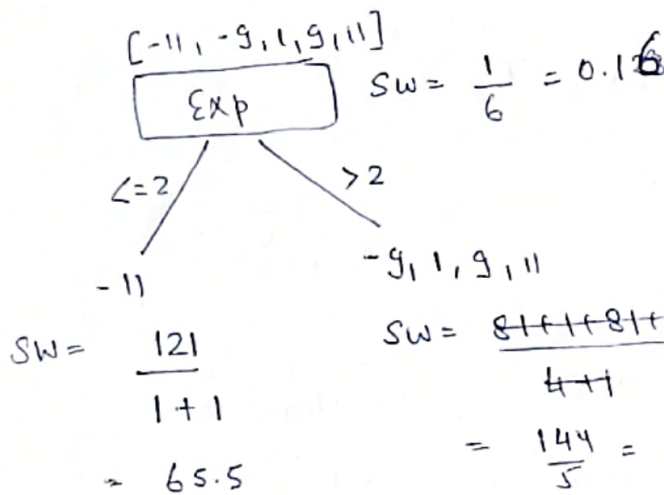 [-11, -9, 1, 9, 11]
Exp
SW = 1/6 = 0.16
<=2
>2
-11
-9, 1, 9, 11
SW = 121 / 1+1
= 65.5
SW = 81+1+81+ / 4+1
= 144/5 =